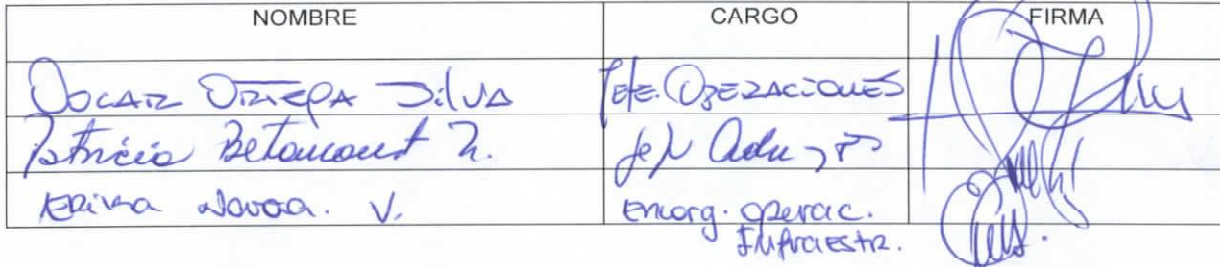 NOMBRE CARGO FIRMA
Oscar Ortega Silva Jefe. Operaciones
Patricia Betancourt
Erika Novoa. V. Encarg. operac.
Infraestr.